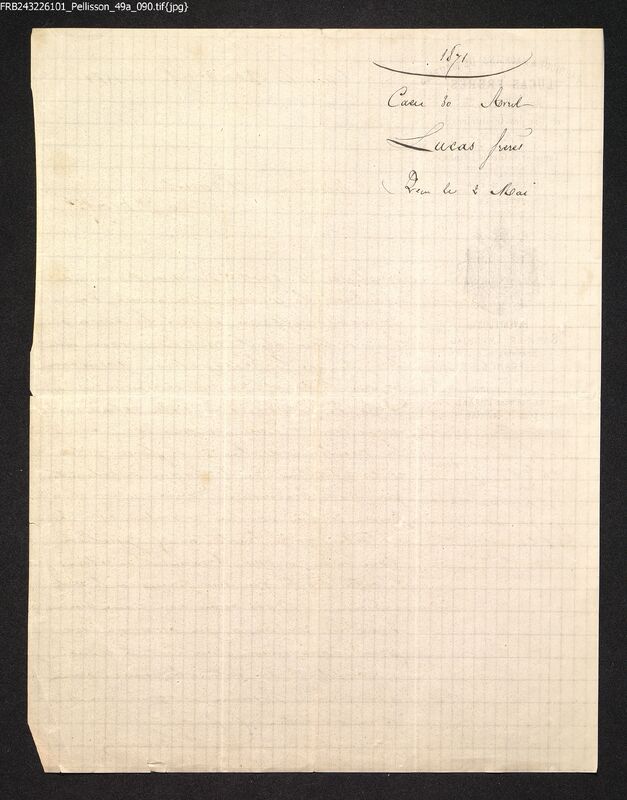 FRB243226101_Pellisson_49a_090.tif{jpg}
1871
Caen 30 Avril
Lucas frères
Rem le 2 Mai